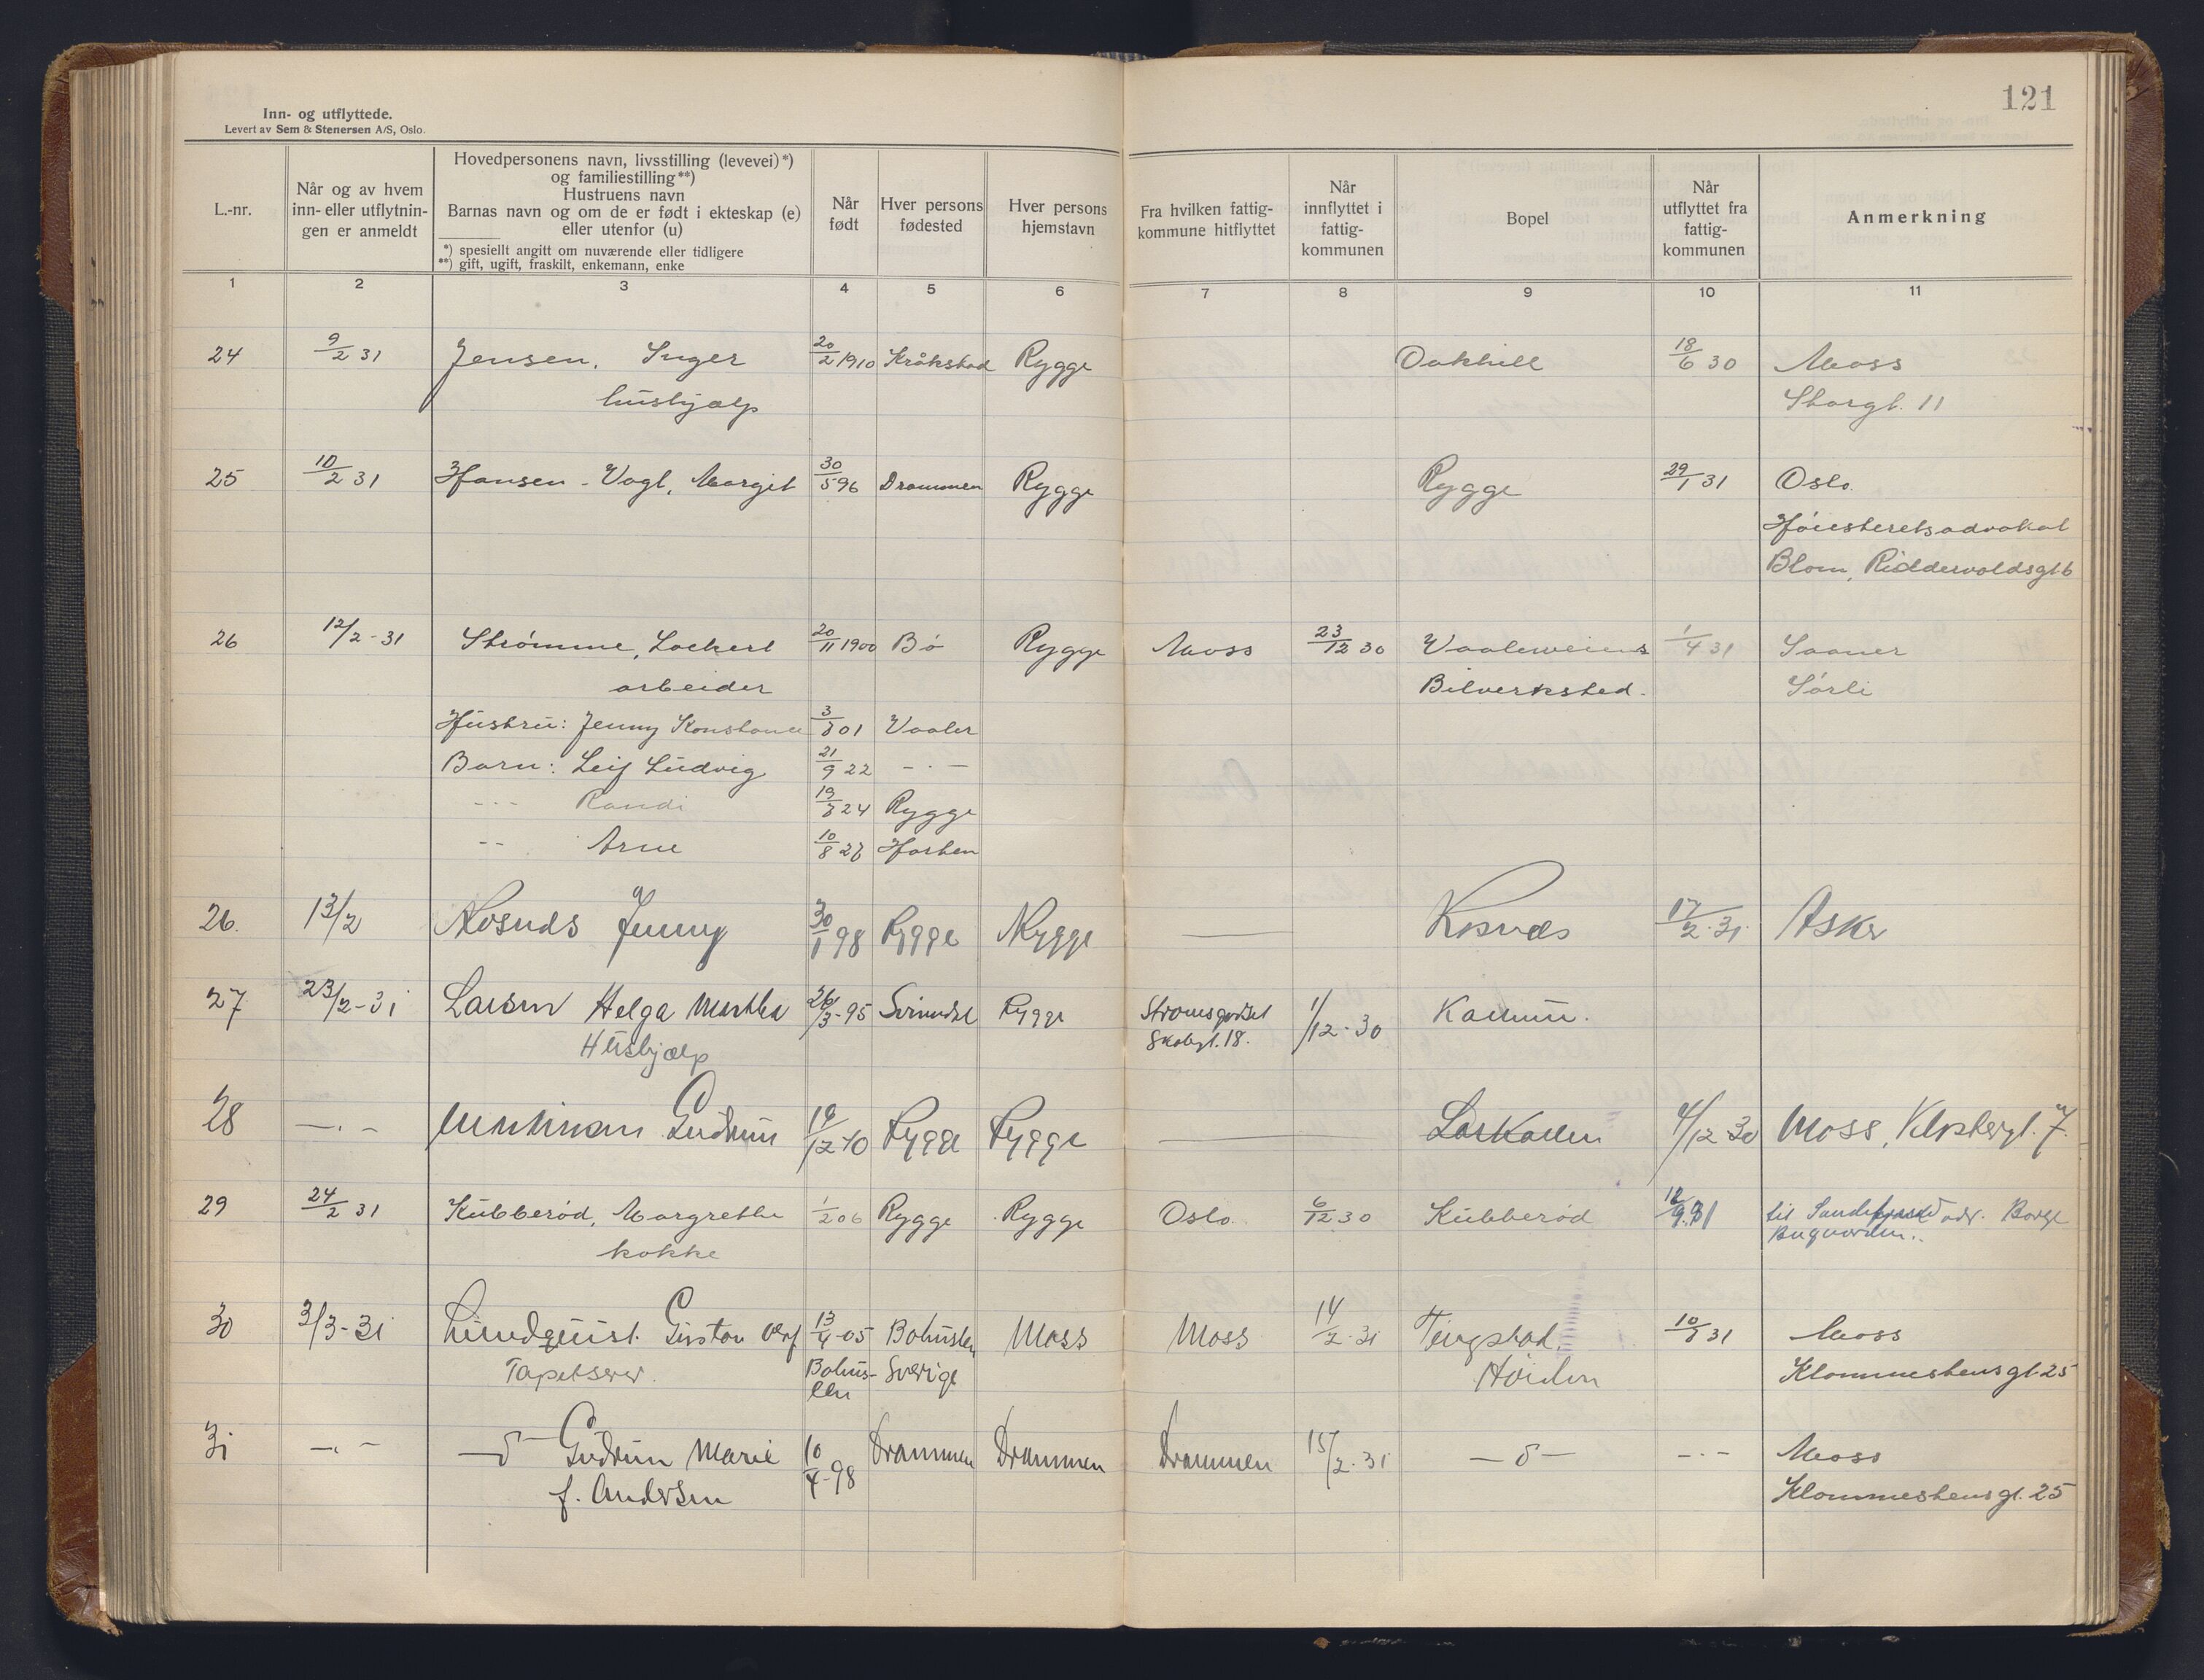 121
Inn- og utflyttede.
Levert av Sem & Stenersen A/S, Oslo.
L.-nr.
Når og av hvem
inn- eller utflytnin-
gen er anmeldt
Hovedpersonens navn, livsstilling (levevei)*)
og familiestilling**)
Hustruens navn
Barnas navn og om de er født i ekteskap (e)
eller utenfor (u)
*) spesiellt angitt om nuværende eller tidligere
**) gift, ugift, fraskilt, enkemann, enke
Når
født
Hver persons
fødested
Hver persons
hjemstavn
Fra hvilken fattig-
kommune hitflyttet
Når
innflyttet i
fattig-
kommunen
Bopel
Når
utflyttet fra
fattig-
kommunen
Anmerkning
1 2 3 4 5 6 7 8 9 10 11
24 9/2 31 Jensen, Inger 20/2 1910 Kråkstad Rygge Oakhill 18/6 30 Moss
hushjælp Storgt. 11
25 10/2 31 Hansen-Vogt, Margit 30/5 96 Drammen Rygge Rygge 29/1 31 Oslo.
Høiesteretsadvokat
Blom, Riddervoldsgt 6
26 12/2-31 Strømme, Lockert 20/11 1900 Bø Rygge Moss 23/12 30 Vaalerveiens 1/4 31 Saaner
arbeider Bilverksted. Sørli
Hustru: Jenny Konstance 3/8 01 Vaaler
Barn: Leif Ludvig 21/9 22 - . -
- . - Randi 19/8 24 Rygge
- - Arne 10/8 28 Horten
26. 13/2 Rosnes Jenny 30/1 98 Rygge Rygge — Rosnes 17/2.31. Asker
27 23/2-31 Larsen Helga Martha 26/3-95 Svinndal Rygge Strømsgodset 1/12-30 Karlum.
Hushjælp Skolegt. 18.
28 - . - Gudrun 19/12 10 Rygge Rygge — Larkollen 4/12 30 Moss, Klostergt. 7.
29 24/2 31 Kubberød, Margrethe 1/2 06 Rygge Rygge Oslo. 6/12 30 Kubberød 12/9.31 til Sandefjord adr. Borge
kokke Bugården.
30 3/3-31 Lundquist. Gustav Olaf 13/4-05 Bohuslen Moss Moss 14/2-31 Tingstad, 10/8 31 Moss
Tapetserer. Bohus- Sverige Høiden Klommestensgt. 25
len
31 - . - — d — Gudrun Marie 10/4-98 Drammen Drammen Drammen 15/2-31 — d — - . - Moss
f. Andersen Klommestensgt. 25